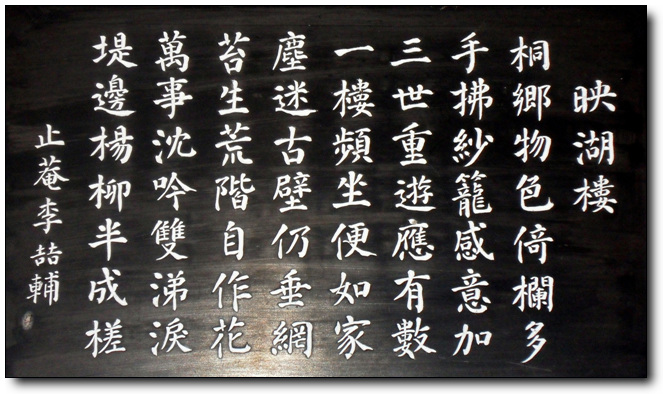 映湖樓
桐鄉物色倚欄多
手拂紗籠感意加
三世重遊應有數
一樓頻坐便如家
塵迷古壁仍垂網
苔生荒階自作花
萬事沈吟雙涕淚
堤邊楊柳半成槎
止菴李喆輔